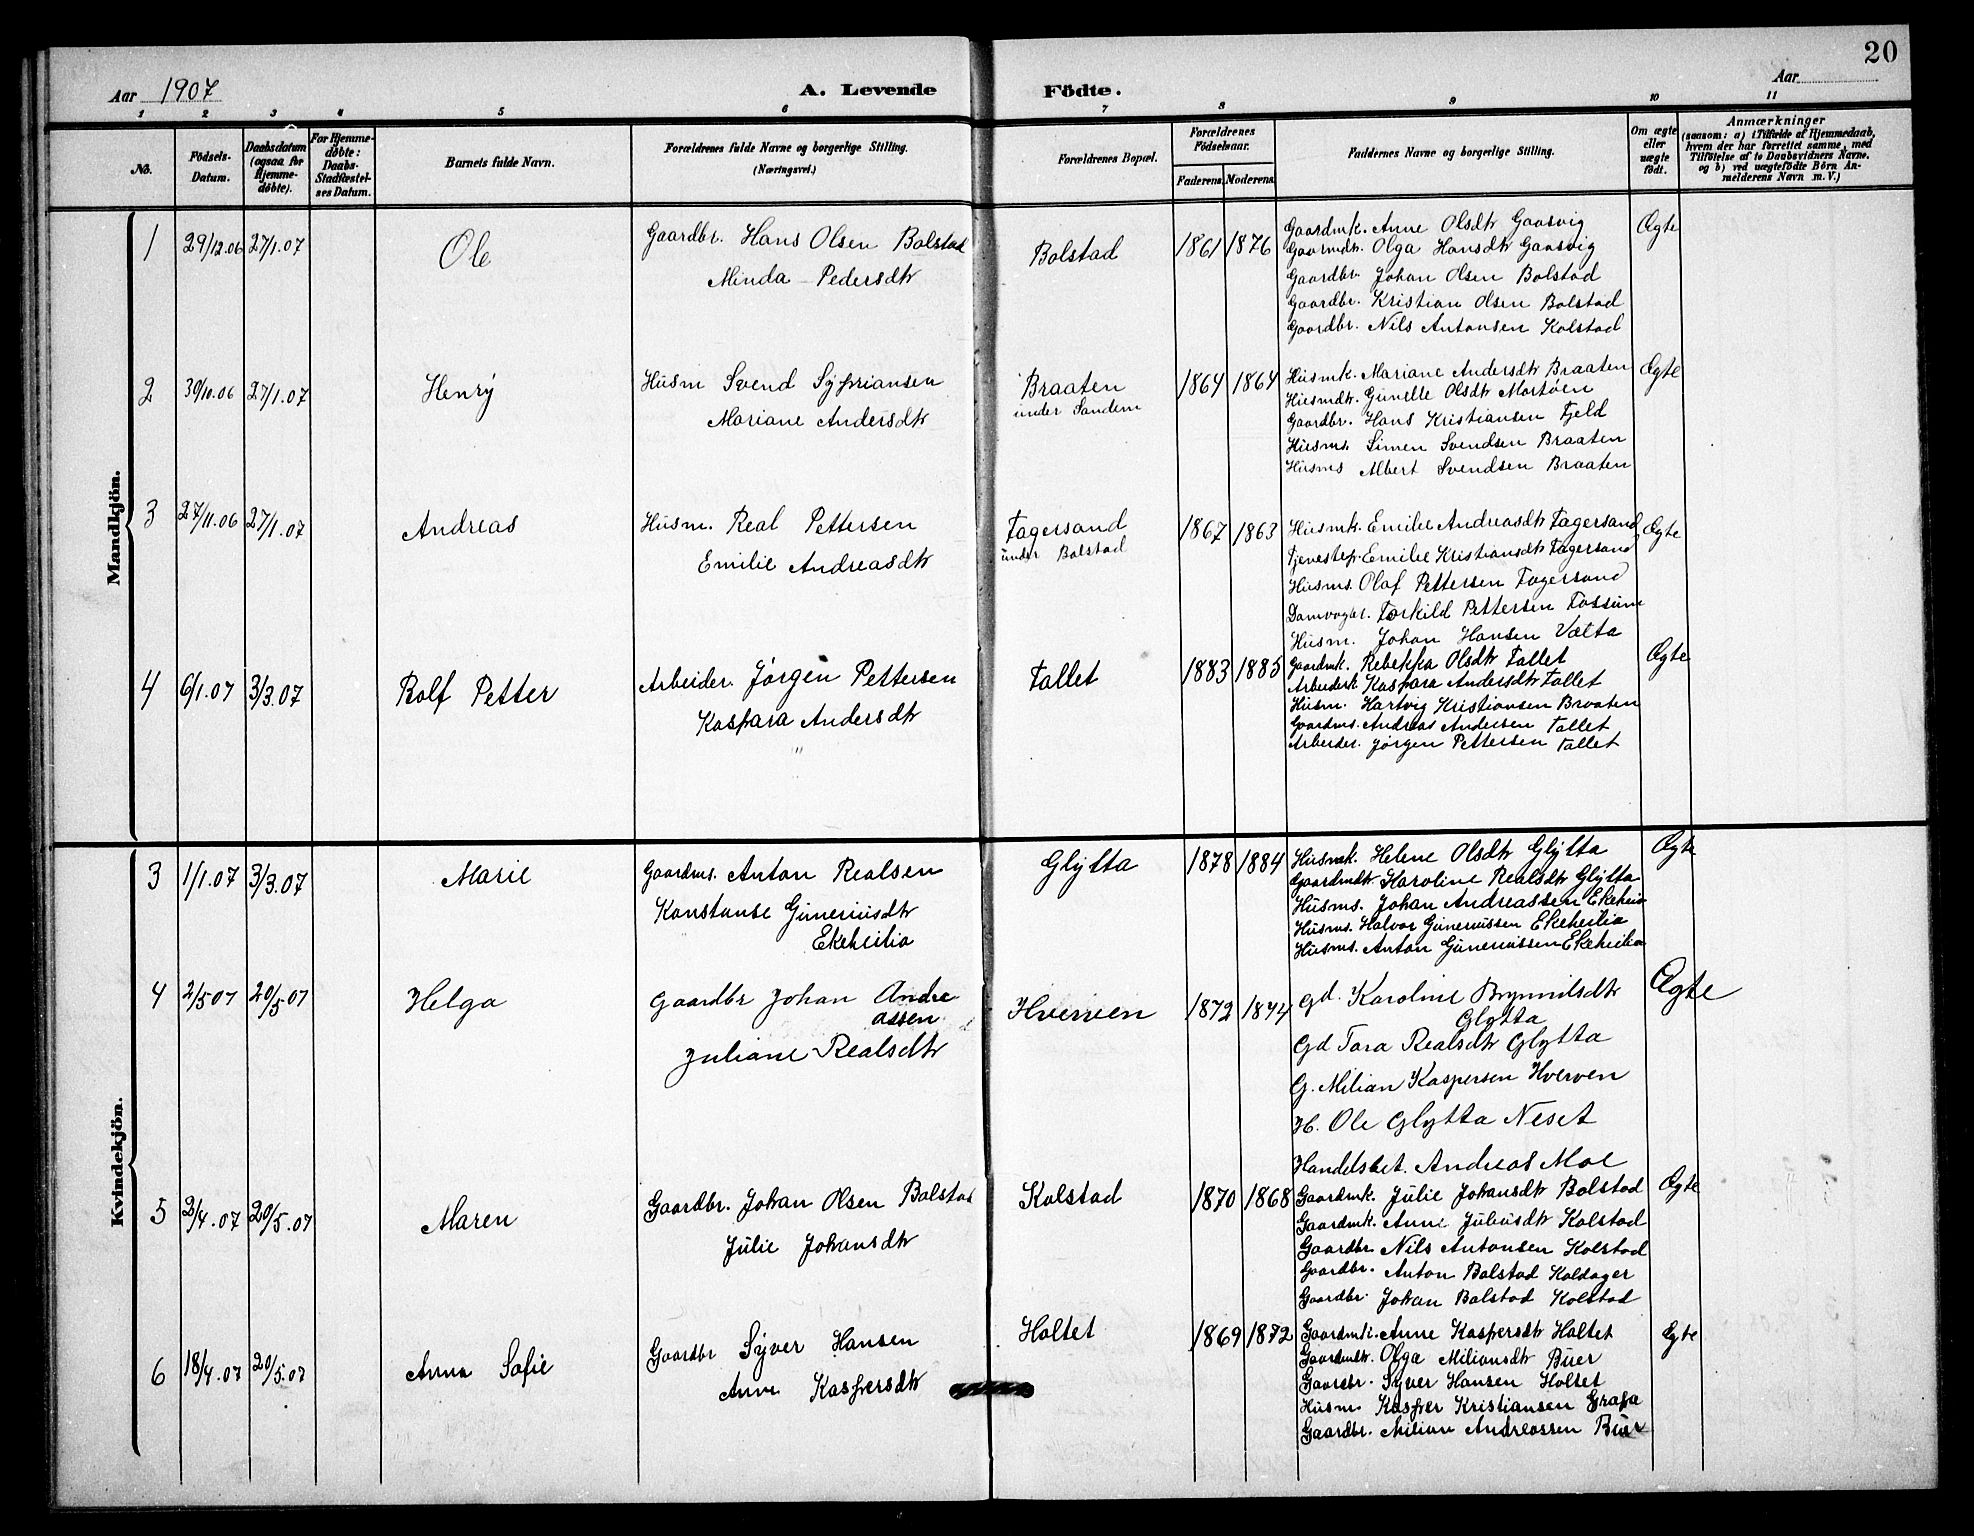 20
Aar 1907
A. Levende Födte.
Aar
1 2 3 4 5 6 7 8 9 10 11
No.
Födsels-Datum.
Daabsdatum (ogsaa for Hjemme-döbte).
For Hjemme-döbte: Daabs-Stadfæstel-ses Datum.
Barnets fulde Navn.
Forældrenes fulde Navne og borgerlige Stilling. (Næringsvei.)
Forældrenes Bopæl.
Forældrenes Födselsaar.
Faderens. Moderens.
Faddernes Navne og borgerlige Stilling.
Om ægte eller uægte födt.
Anmærkninger
(saasom: a) i Tilfælde af Hjemmedaab,
hvem der har forrettet samme, med
Tilföielse af to Daabsvidners Navne.
og b) ved uægtefödte Börn An-
melderens Navn m. V.)
Mandkjön.
1 29/12.06 27/1.07 Ole
Gaardbr. Hans Olsen Bolstad
Minda Pedersdtr
Bolstad 1861 1876
Gaardmk. Anne Olsdtr Gaasvig
Gaarmdtr. Olga Hansdtr Gaasvig
Gaardbr. Johan Olsen Bolstad
Gaardbr. Kristian Olsen Bolstad
Gaardbr. Nils Antonsen Kolstad
Ægte
2 30/10.06 27/1.07 Henry
Husm Svend Sypriansen
Mariane Andersdtr
Braaten
under Sandem
1864 1864
Husmk. Mariane Andersdtr Braaten
Husmdtr. Gunelle Olsdtr Mortøen
Gaardbr. Hans Kristiansen Fjeld
Husms. Simen Svendsen Braaten
Husms Albert Svendsen Braaten
Ægte
3 27/11.06 27/1.07 Andreas
Husm. Real Pettersen
Emilie Andreasdtr
Fagersand
under Bolstad
1867 1863
Husmk. Emilie Andreasdtr Fagersand
Tjenestep. Emilie Kristiansdtr Fagersand
Husms. Olaf Pettersen Fagersand
Damvogtr. Torkild Pettersen Fossum
Husm. Johan Hansen Vætta
Ægte
4 6/1.07 3/3.07 Rolf Petter
Arbeider. Jørgen Pettersen
Kaspara Andersdtr
"
Tallet 1883 1885
Gaardmk. Rebekka Olsdtr Tallet
Arbeiderk. Kaspara Andersdtr Tallet
Husm. Hartvig Kristiansen Braaten
Gaardms. Andreas Andersen Tallet
Arbeider. Jørgen Pettersen Tallet
Ægte
Kvindekjön.
3 1/1.07 3/3.07 Marie
Gaardms. Anton Realsen
Konstanse Guneriusdtr
Ekeheilia
Glytta 1878 1884
Husmk. Helene Olsdtr Glytta
Gaardmdtr Karoline Realsdtr Glytta
Husms. Johan Andreassen Ekeheia
Husms. Halvor Guneriussen Ekeheilia
Husms. Anton Guneriussen Ekeheilia
Ægte
4 2/5 07 20/5 07 Helga
Gaardbr Johan Andre
assen
Juliane Realsdtr
Hverven 1872 1874
Gd. Karoline Brynnildsdtr
Glytta
Gd Tora Realsdtr Glytta
G. Milian Kaspersen Hverven
H. Ole Glytta Neset
Handelsbet. Andreas Moe
Ægte
5 2/4.07 20/5.07 Maren
Gaardbr. Johan Olsen Bolstad
Julie Johansdtr
Kolstad 1870 1868
Gaardmk. Julie Johansdtr Bolstad
Gaardmk. Anne Juliusdtr Kolstad
Gaardbr. Nils Antonsen Kolstad
Gaardbr. Anton Bolstad Koldager
Gaardbr. Johan Bolstad Kolstad
Ægte
6 18/4.07 20/5.07 Anna Sofie
Gaardbr Syver Hansen
Anne Kaspersdtr
Holtet 1869 1872
Gaardmk. Anne Kaspersdtr Holtet
Gaardmdtr. Olga Miliansdtr Buer
Gaardbr. Syver Hansen Holtet
Husm Kasper Kristiansen Grafa
Gaardbr. Milian Andreassen Buer
Ægte